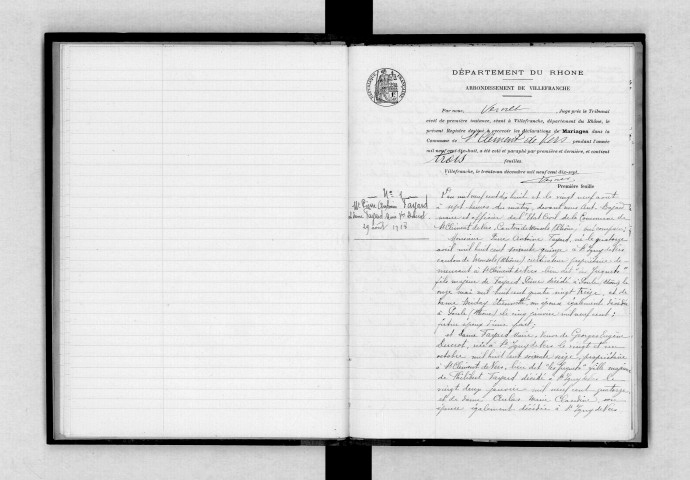 DÉPARTEMENT DU RHONE
ARRONDISSEMENT DE VILLEFRANCHE
RÉPUBLIQUE FRANÇAISE
Par nous, Juge près le Tribunal
civil de première instance, séant à Villefranche, département du Rhône, le
présent Registre destiné à recevoir les déclarations de Mariages dans la
Commune de St Clément de Vers pendant l'année
mil neuf cent dix-huit, a été coté et paraphé par première et dernière, et contient
trois feuilles.
Villefranche, le trente-un décembre mil neuf cent dix-sept.
Première feuille
No 1
Mr Pierre Antoine Fayard
29 août 1918
L'an mil neuf cent dix huit et le vingt neuf août
à sept heures du matin, devant nous
maire et officier de l'Etat Civil de la Commune de
St Clément de Vers, Canton de Monsols (Rhône), ont comparu :
Monsieur Pierre Antoine Fayard, né le quatorze
avril mil huit cent soixante quinze à St Igny de Vers
canton de Monsols (Rhône) cultivateur propriétaire de-
meurant à St Clément de Vers lieu dit
fils majeur de Fayard décédé à Poule (Rhône) le
onze mai mil huit cent quatre vingt treize, et de
dame son épouse également décédée
à Poule (Rhône) le cinq janvier mil neuf cent ;
d'une part ;
et dame Fayard Marie, veuve de Georges Eugène
née à St Igny de Vers le vingt et un
octobre mil huit cent soixante seize, propriétaire
à St Clément de Vers, lieu dit fille majeure
de Fayard décédé à St Igny de Vers le
vingt deux janvier mil neuf cent quatorze
et de dame Marie Claudine, son
épouse également décédée à St Igny de Vers